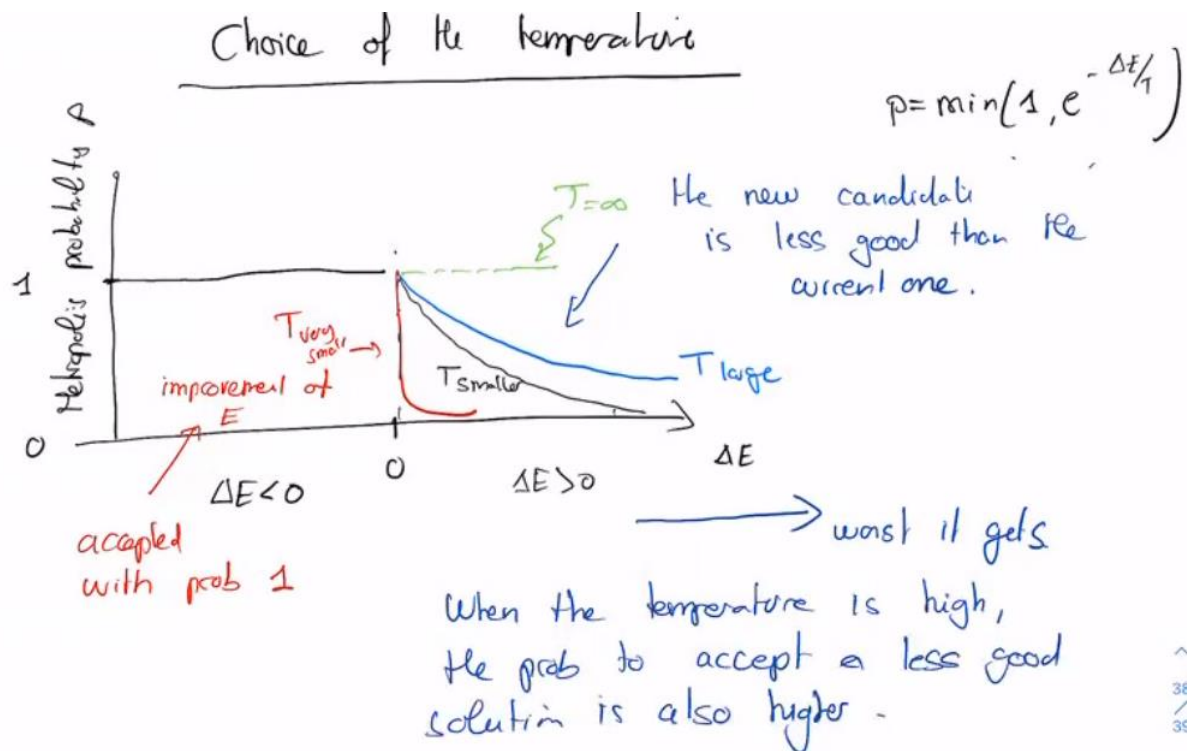 Choice of the temperature
p = min(1, e^{-ΔE/T})
Metropolis probability P
T=∞
the new candidate
is less good than the
current one.
1
T very small →
T smaller
T large
improvement of
E
0
0
ΔE
ΔE<0
ΔE>0
accepted
with prob 1
worst it gets
When the temperature is high,
the prob to accept a less good
solution is also higher.
38
39